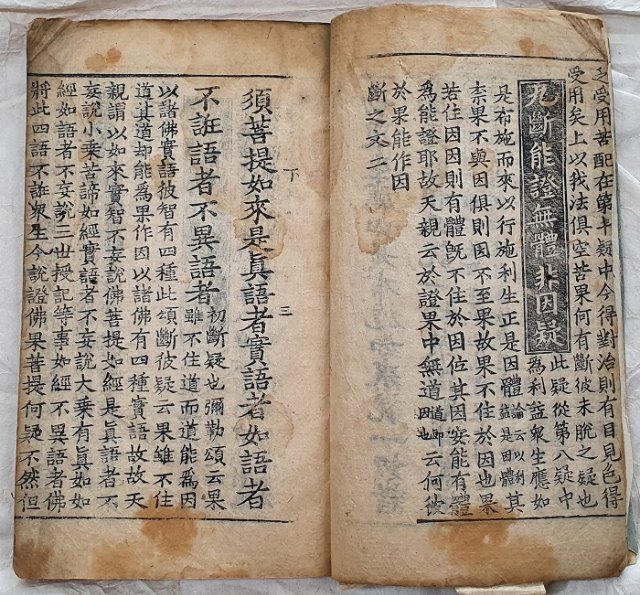 乏受用苦配在第七疑中今得對治則有目見色得
受用矣上以我法俱空苦果何有斷彼未脫之疑也
九斷能證無體非因疑
此疑從第八疑中
爲利益衆生應如
是布施而來以行施利生正是因體論云以利益是因體其
柰果不與因俱則因不至果故果不住於因也果
若住因因則有體旣不住於因位其因安能有體
爲能證耶故天親云於證果中無道道卽因也云何彼
於果能作因
斷之文二
下 三
須菩提如來是眞語者實語者如語者
不誑語者不異語者
初斷疑也彌勒頌云果
雖不住道而道能爲因
以諸佛實語彼智有四種此頌斷彼疑云果雖不住
道其道却能爲果作因以諸佛有四種實語故故天
親謂以如來實智不妄說佛菩提如經是眞語者不
妄說小乘苦諦如經實語者不妄說大乘有眞如如
經如語者不妄說三世授記等事如經不異語者佛
將此四語不誑衆生今說證佛果菩提何疑不然但